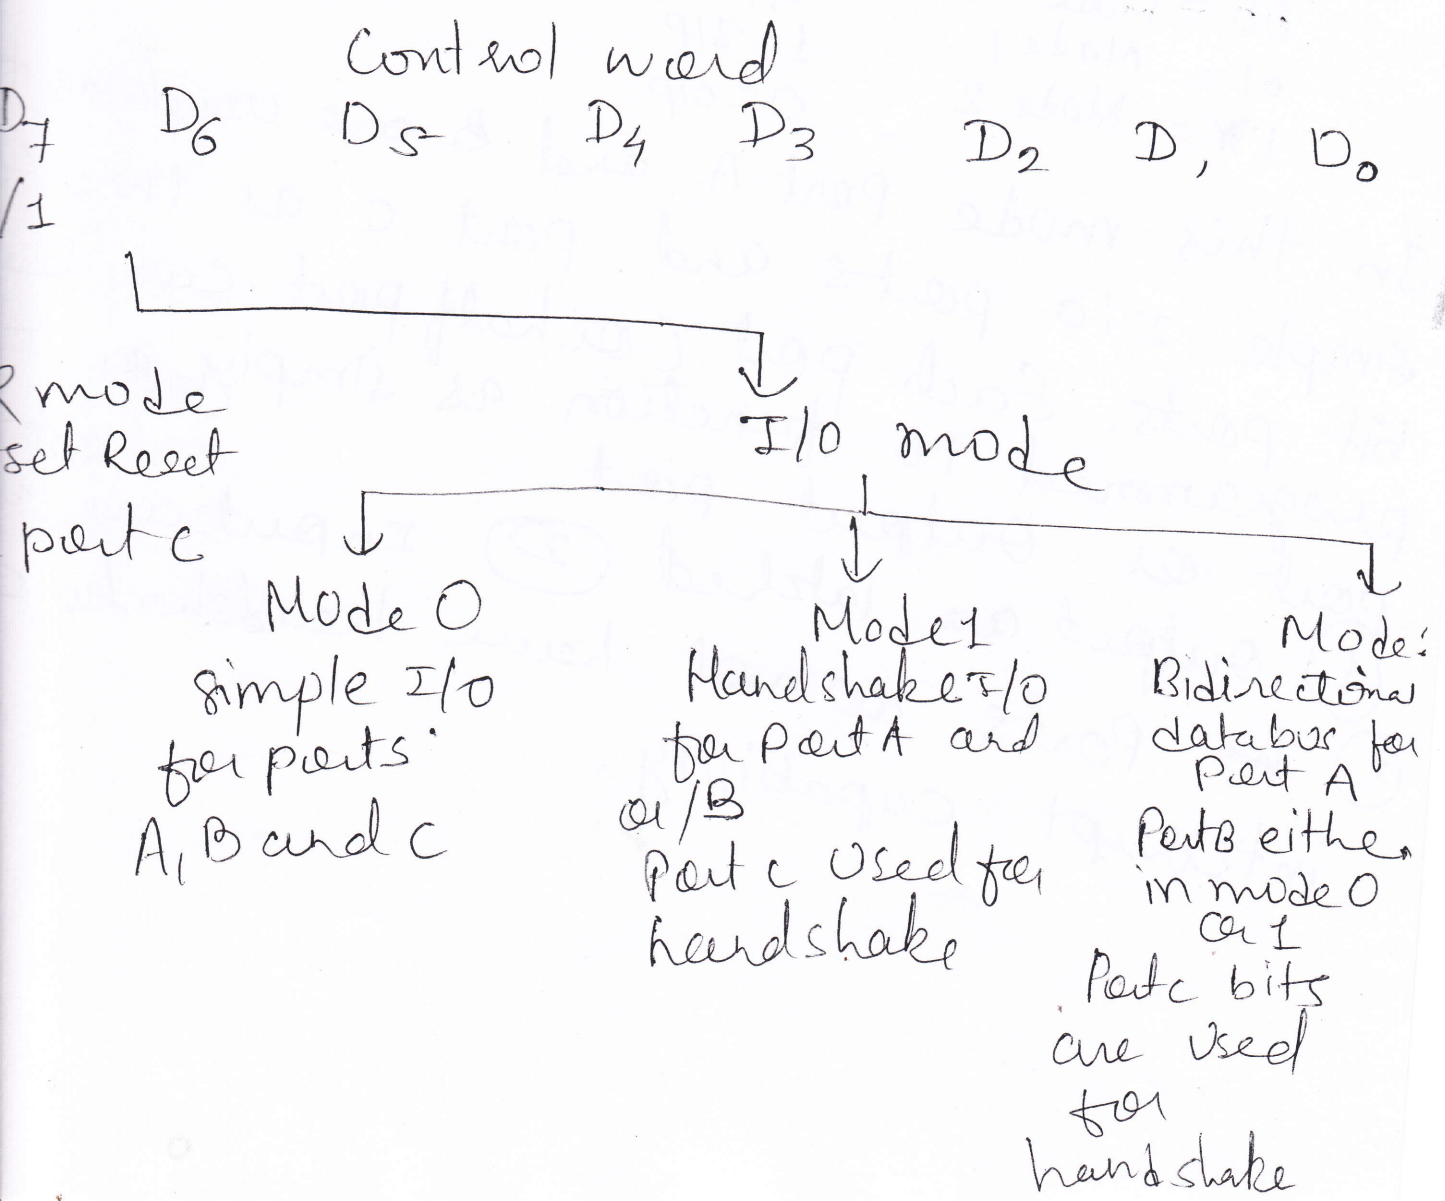 Control word
D7 D6 D5 D4 D3 D2 D1 D0
/1
mode
set Reset
port C
I/O mode
Mode 0
simple I/O
for ports
A, B and C
Mode 1
Handshake I/O
for Port A and
or /B
Port C Used for
handshake
Mode
Bidirectional
databus for
Port A
Port B either
in mode 0
or 1
Port C bits
are Used
for
handshake